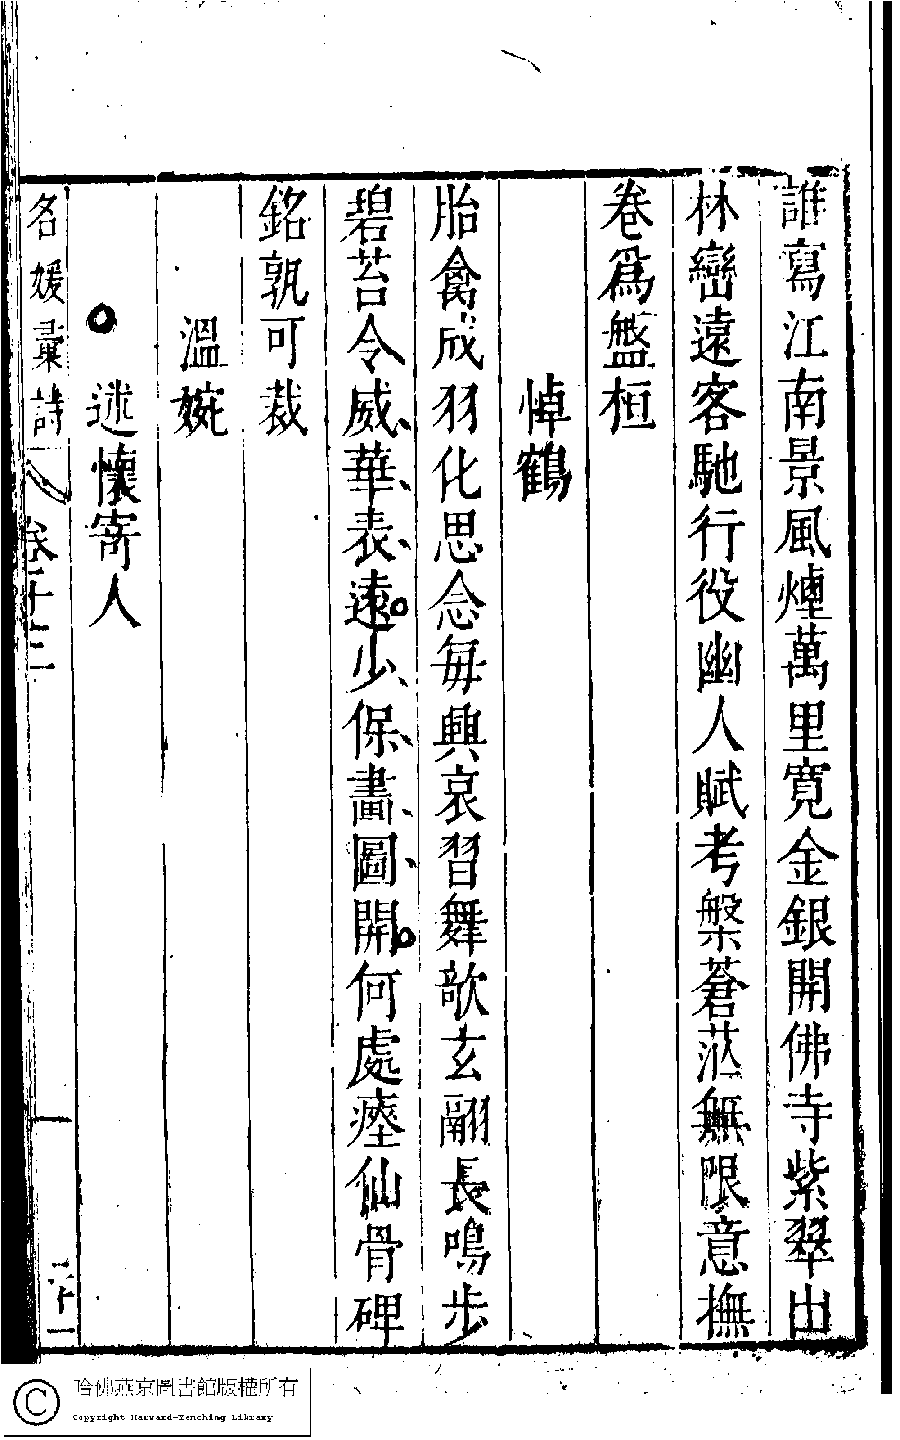 誰寫江南景風煙萬里寬金銀開佛寺紫翠出
林巒遠客馳行役幽人賦考槃蒼茫無限意撫
卷爲盤桓
悼鶴
胎禽成羽化思念每興哀習舞歌玄翮長鳴步
碧苔令威華表遠少保畵圖開何處瘞仙骨碑
銘孰可裁
溫婉
述懷寄人
名媛彙詩 卷十二 二十一
哈佛燕京圖書館版權所有
Copyright Harvard-Yenching Library